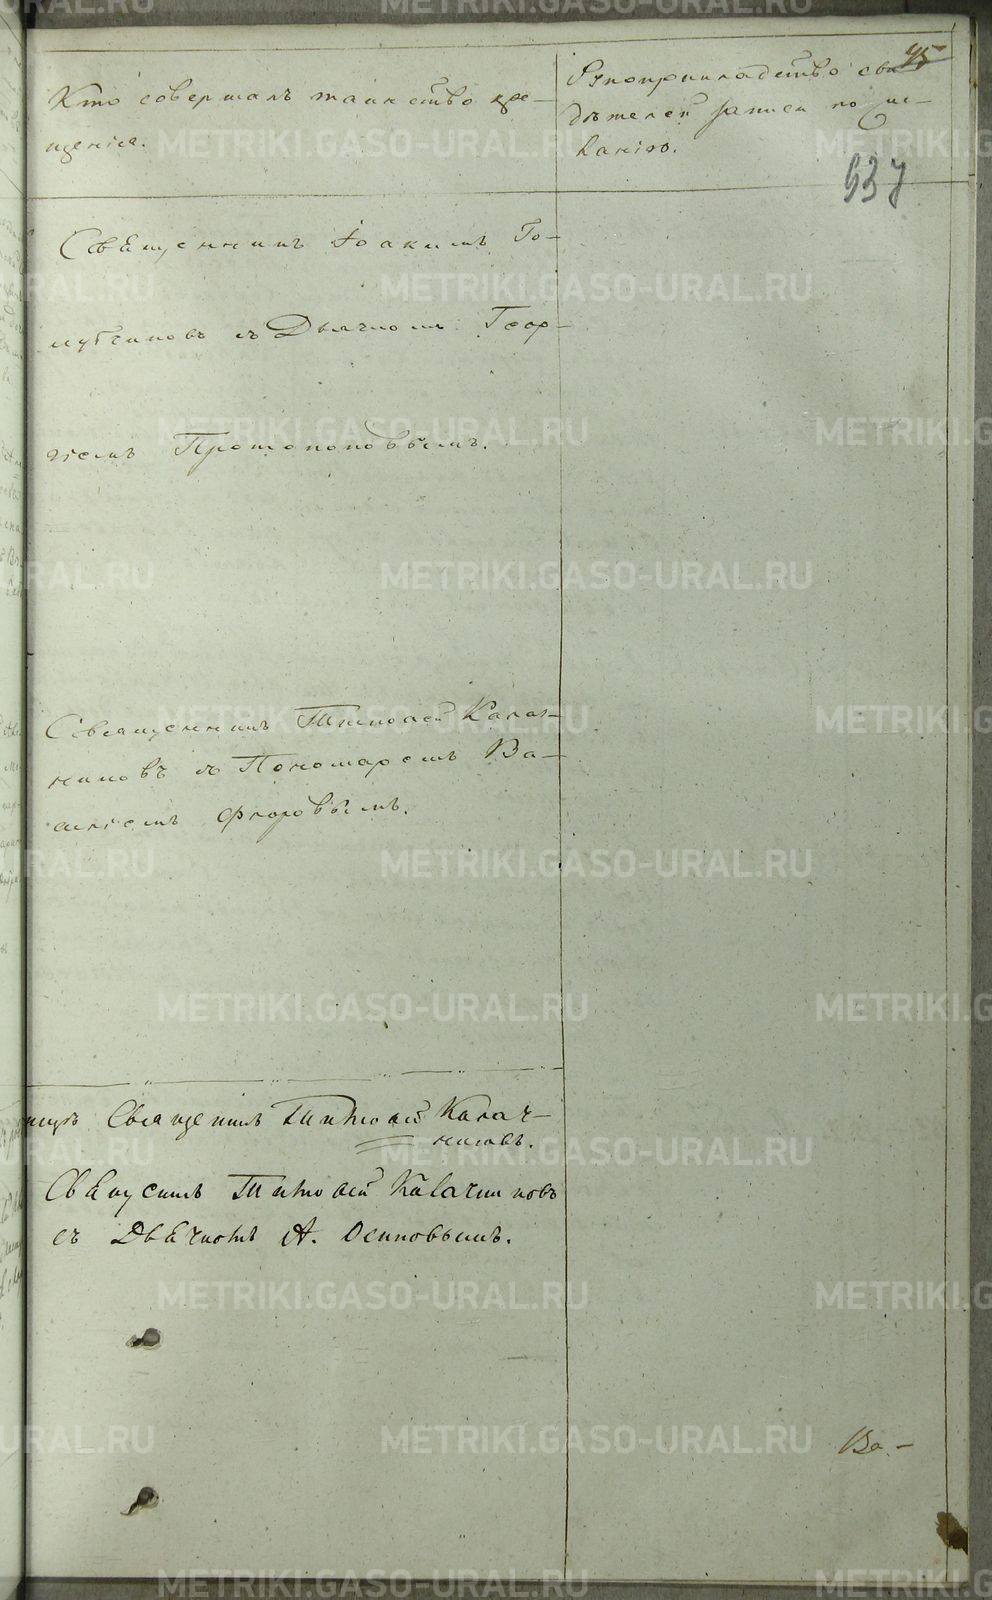 45
Кто совершалъ таинство кре-
щенія.
Рукоприкладство сви
дѣтелей записи по же-
ланію.
637
Священникъ Іоакимъ Го-
лубчиковъ съ Дьячкомъ Геор-
гіемъ Протопоповымъ.
Священникъ Тимофей Калач-
никовъ съ Пономаремъ Ва-
силіемъ Флоровымъ.
Священникъ Тимофей Калач-
никовъ.
Священникъ Тимофей Калачниковъ
съ Дьячкомъ А. Осиповымъ.
Ва-
METRIKI.GASO-URAL.RU